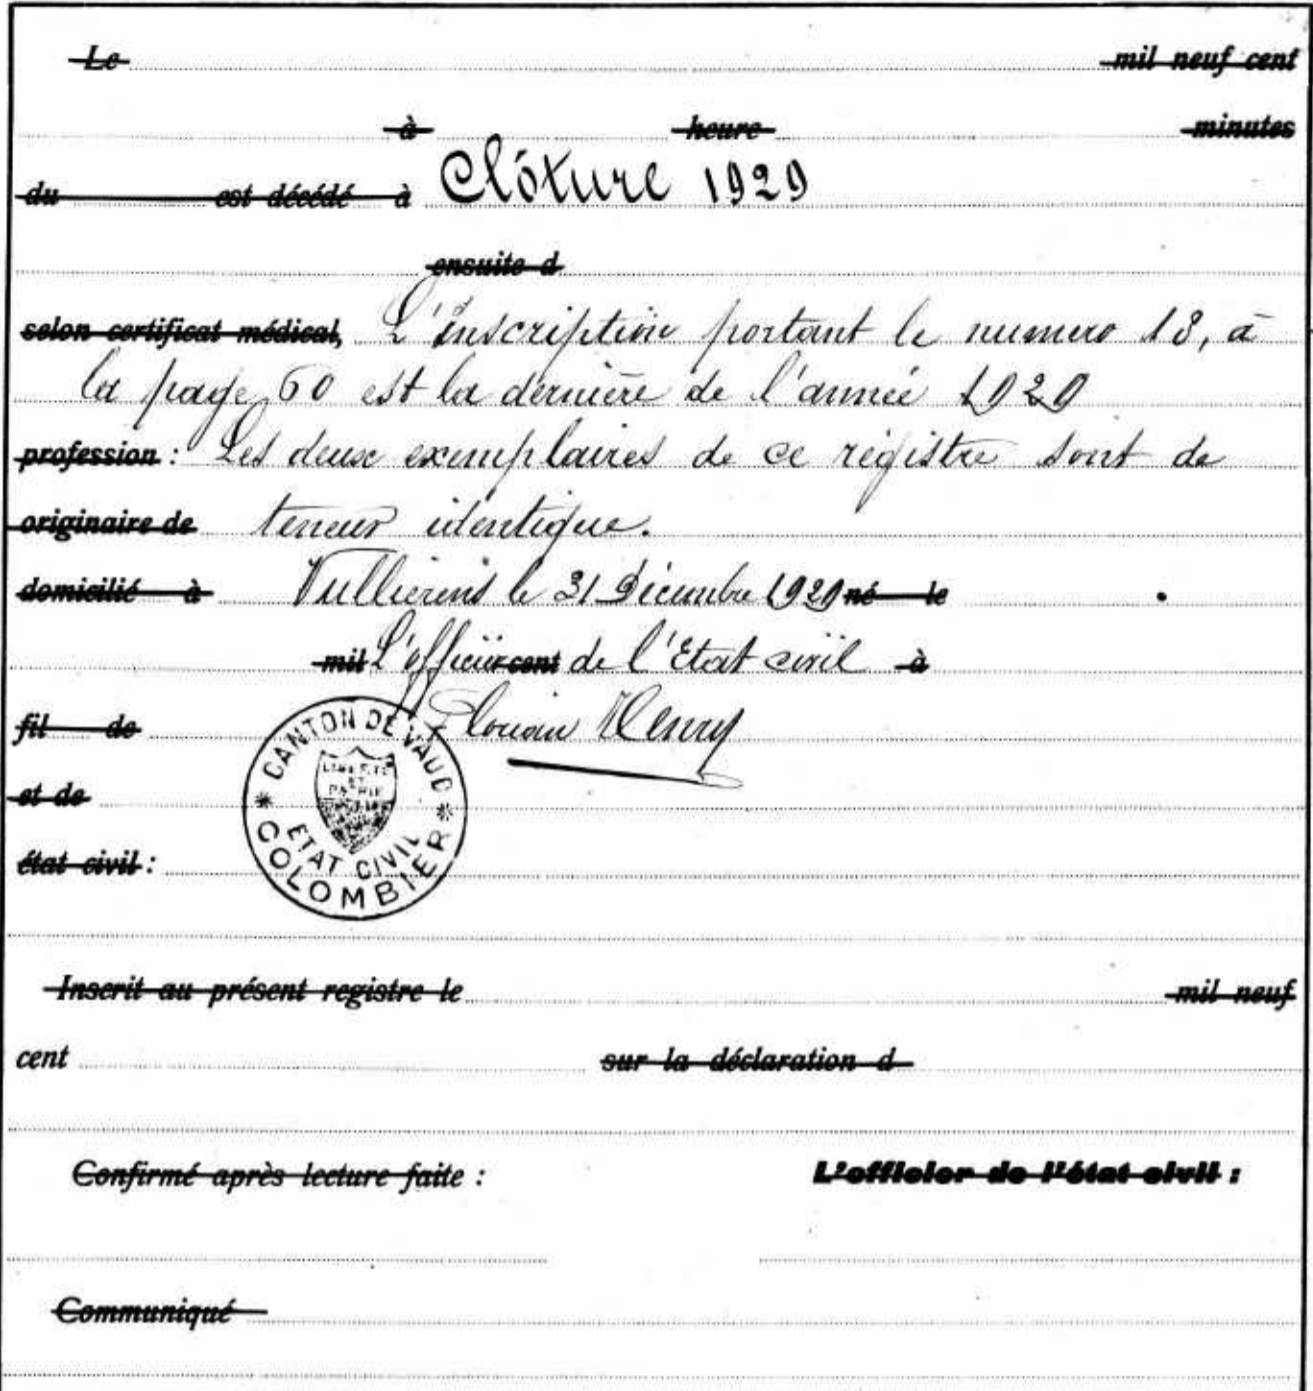 Le mil neuf cent
à heure minutes
du est décédé à Clôture 1929
ensuite d
selon certificat médical, L'inscription portant le numero 13, à
la page 60 est la dernière de l'année 1929
profession : Les deux exemplaires de ce régistre sont de
originaire de teneur identique.
domicilié à Vullierens le 31 Décembre 1929 né le
mil L'officier cent de l'Etat civil à
fil de Florian Henry
et de
CANTON DE VAUD
LIBERTÉ
ET
PATRIE
ETAT CIVIL
COLOMBIER
état civil :
Inscrit au présent registre le mil neuf
cent sur la déclaration d
Confirmé après lecture faite : L'officier de l'état civil :
Communiqué